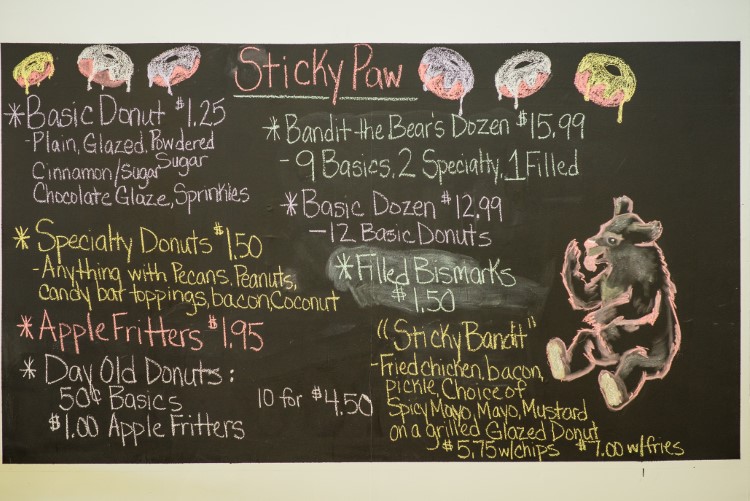 Sticky Paw
*Basic Donut $1.25
-Plain, Glazed, Powdered Sugar
Cinnamon/Sugar
Chocolate Glaze, Sprinkles
*Specialty Donuts $1.50
-Anything with Pecans, Peanuts,
candy bar toppings, bacon, Coconut
*Apple Fritters $1.95
*Day Old Donuts:
50¢ Basics
10 for $4.50
$1.00 Apple Fritters
*Bandit the Bear's Dozen $15.99
-9 Basics, 2 Specialty, 1 Filled
*Basic Dozen $12.99
-12 Basic Donuts
*Filled Bismarks
$1.50
"Sticky Bandit"
-Fried chicken, bacon,
pickle, Choice of
Spicy Mayo, Mayo, Mustard
on a grilled Glazed Donut
$5.75 w/chips $7.00 w/fries